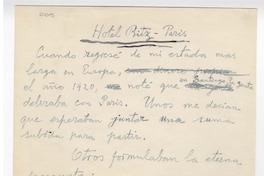 Hotel Ritz - Paris
Cuando regresé de mi estada mas
larga en Europa,
el año 1920, noté que en Santiago la gente
deliraba con Paris. Unos me decian
que esperaban juntar una suma
subida para partir.
Otros formulaban la eterna